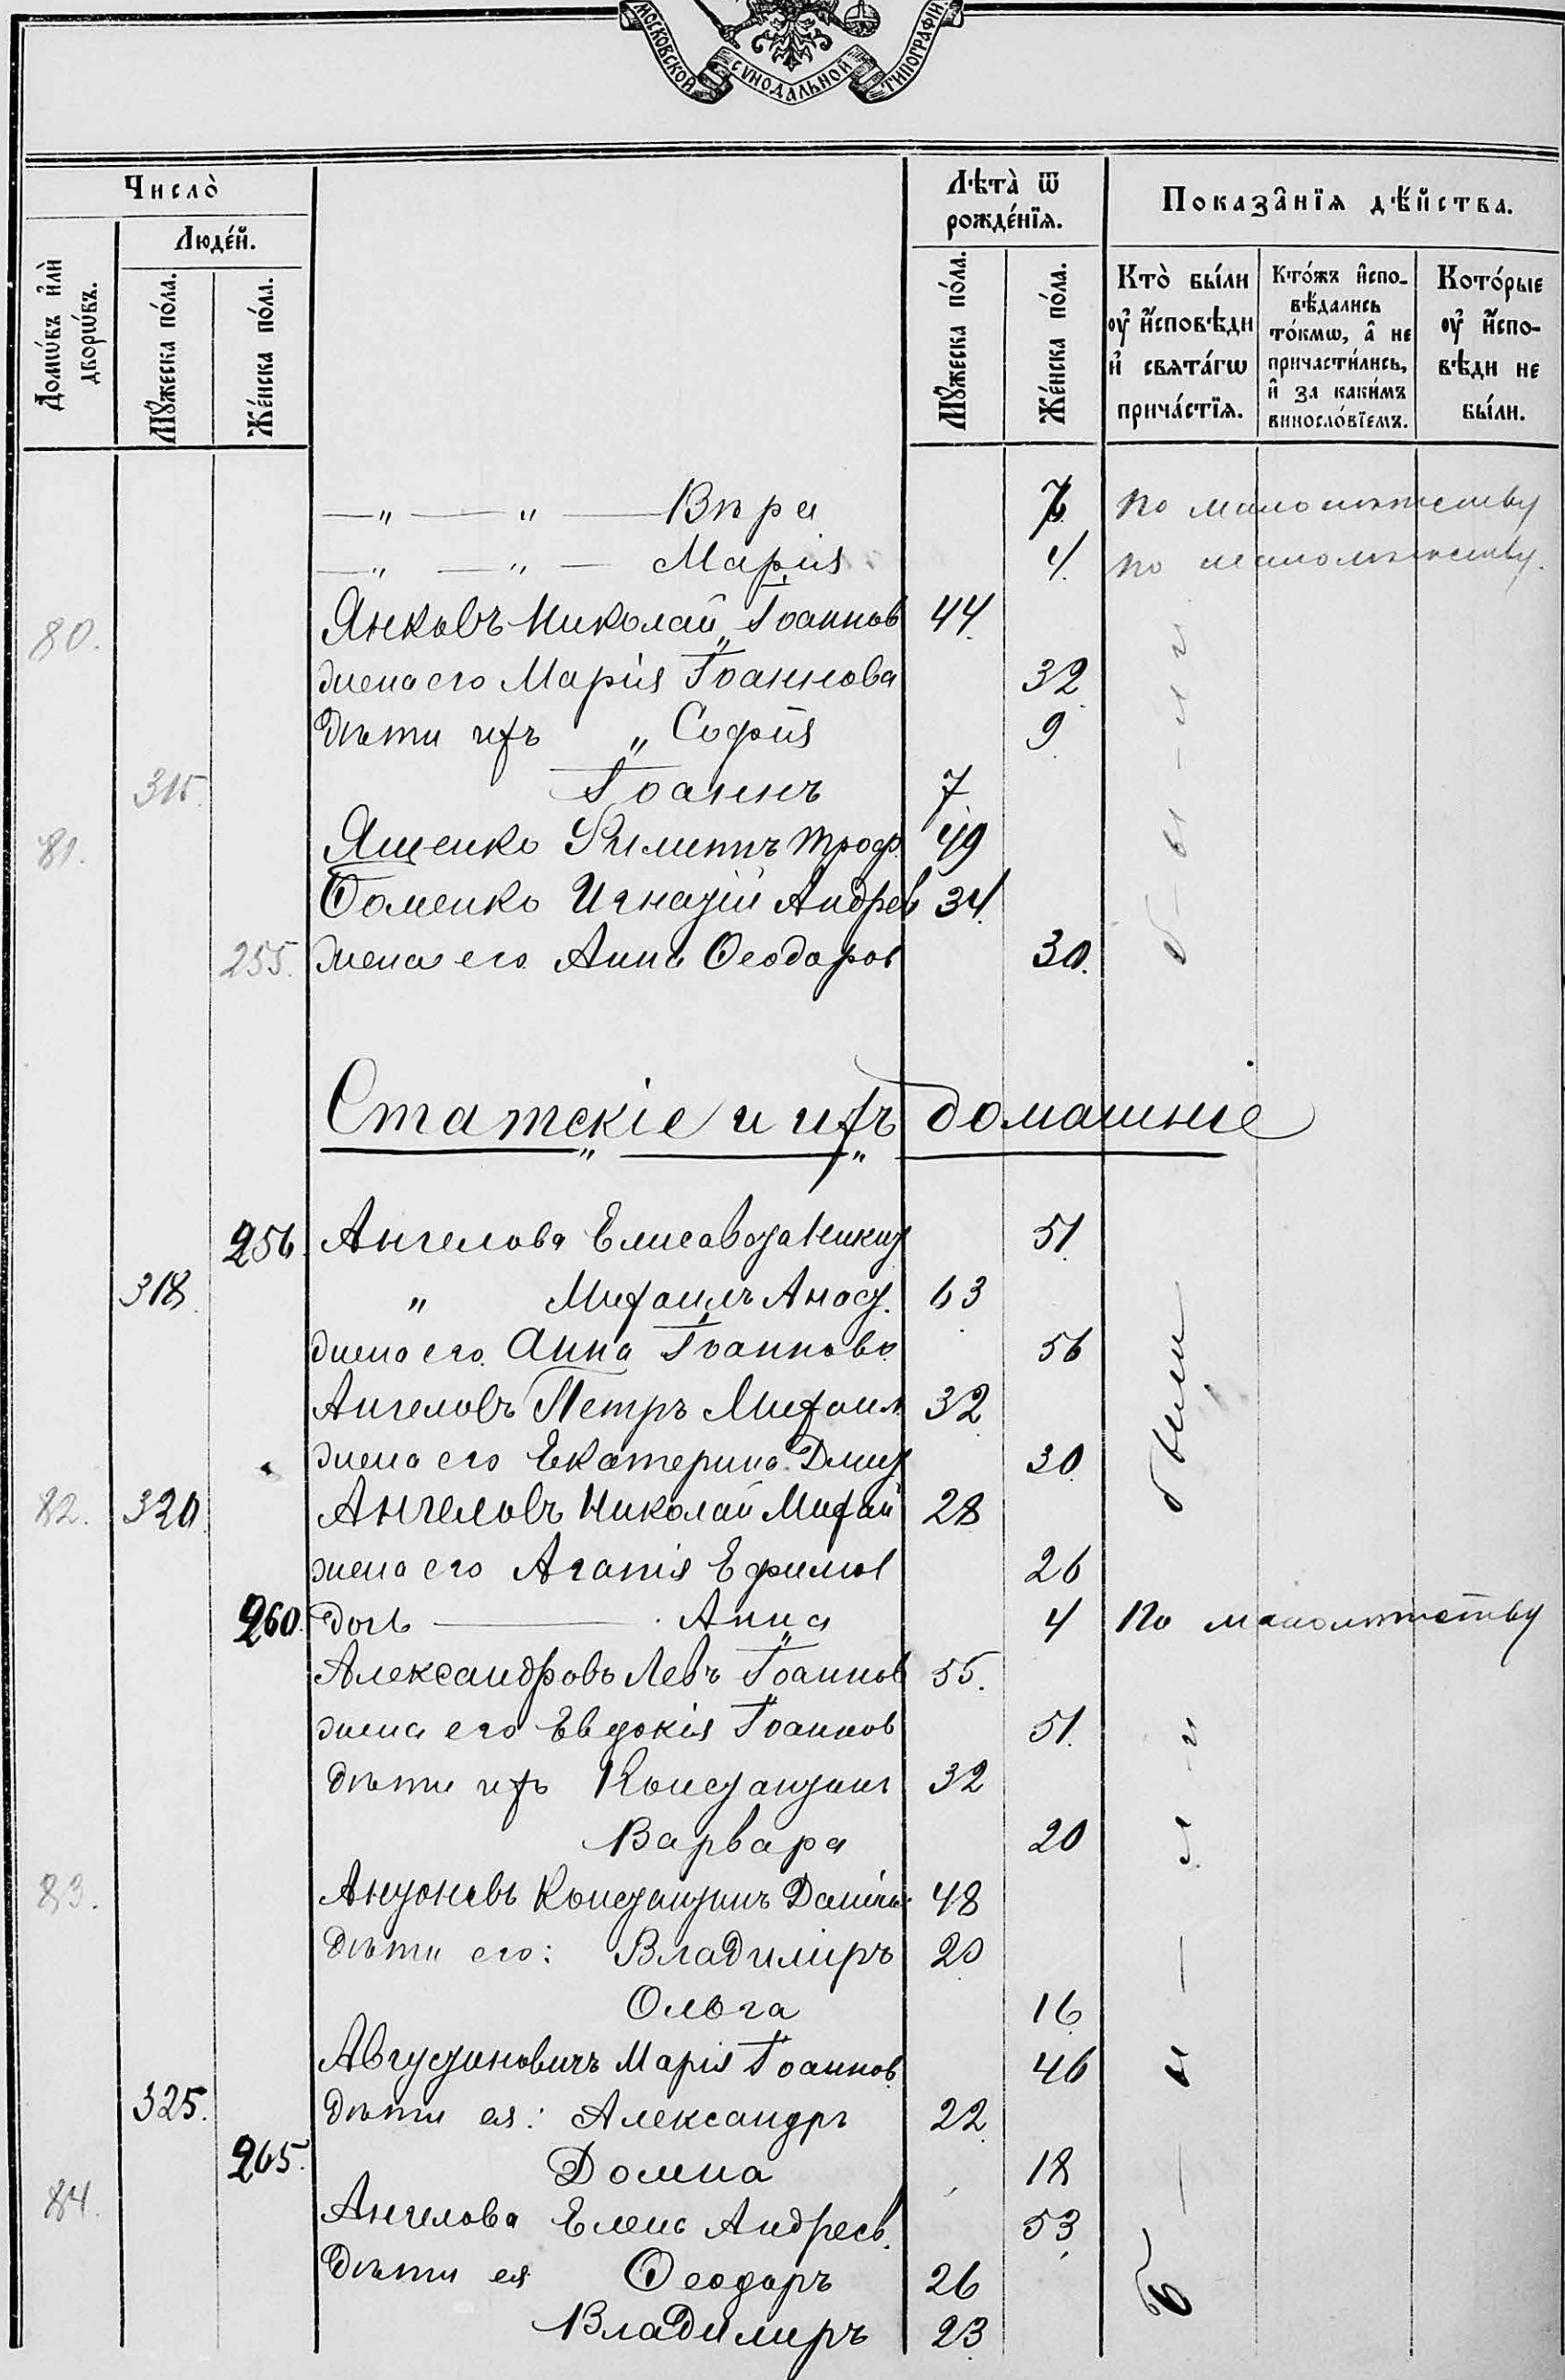 МОСКОВСКОЙ СѴНОДАЛЬНОЙ ТИПОГРАФІИ
Число̀
Люде́й.
Домѡ́въ и҆лѝ дворѡ́въ.
Мꙋ́жеска по́ла.
Же́нска по́ла.
Лѣта̀ ѿ рожде́нїѧ.
Мꙋ́жеска по́ла.
Же́нска по́ла.
Показа̑нїѧ дѣ́йства.
Кто̀ бы́ли ᲂу҆ и҆́сповѣди и҆ свѧта́гѡ прича́стїѧ.
Кто́жъ и҆спо-
вѣ́дались
то́кмѡ, а҆ не
причасти́лись,
и҆ за каки́мъ
виносло́вїемъ.
Кото́рые ᲂу҆ и҆́спо-
вѣди не бы́ли.
—„— „ — Вѣра 7 по малолѣтству
—„— „ — Марія 4. по малолѣтству.
80. Янковъ Николай Іоаннов 44.
жена его Марія Іоаннова 32
дѣти ихъ „ Софія 9
315. Іоаннъ 7
81. Ященко Филиппъ Троф. 49
Ѳоменко Игнатій Андрев 34.
255. жена его Анна Ѳеодоров 30.
б-ы-л и
Статскіе и ихъ домашніе
256 Ангелова Елисавета Никит 51
318. „ Михаилъ Анаст. 63
жена его Анна Іоаннова 56
Ангеловъ Петръ Михаил 32
жена его Екатерина Дмит 30
82. 320 Ангеловъ Николай Михаи 28
жена его Агапія Ефимов 26
были
260. дочь — Анна 4 По малолѣтству
Александровъ Левъ Іоаннов 55.
жена его Евдокія Іоаннов 51.
дѣти ихъ Константин 32
Варвара 20
83. Антоновъ Константинъ Даніил. 48
дѣти его: Владиміръ 20
Ольга 16
Августиновичъ Марія Іоаннов. 46
325. дѣти ея: Александръ 22
265. Домна 18
84. Ангелова Елена Андреев. 53
дѣти ея Ѳеодоръ 26
Владиміръ 23
б — ы — л-и